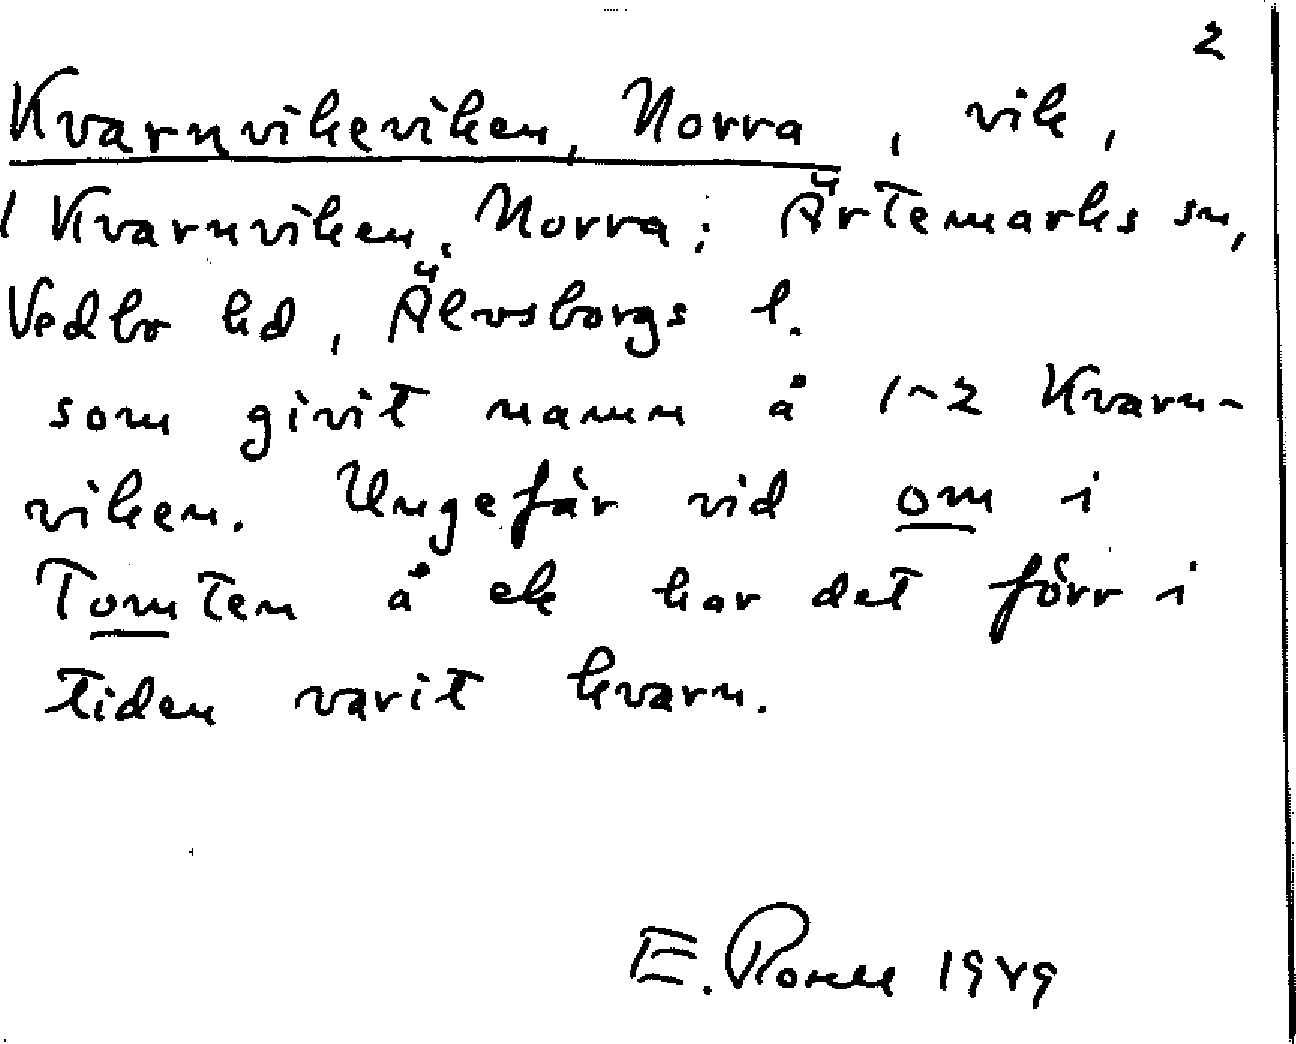 2
Kvarnvikeviken, Norra, vik,
1 Kvarnviken, Norra; Ärtemarks sn,
Vedbo hd, Älvsborgs l.
som givit namn å 1-2 Kvarn-
viken. Ungefär vid om i
Tomten å ek har det förr i
tiden varit kvarn.
E. 1949